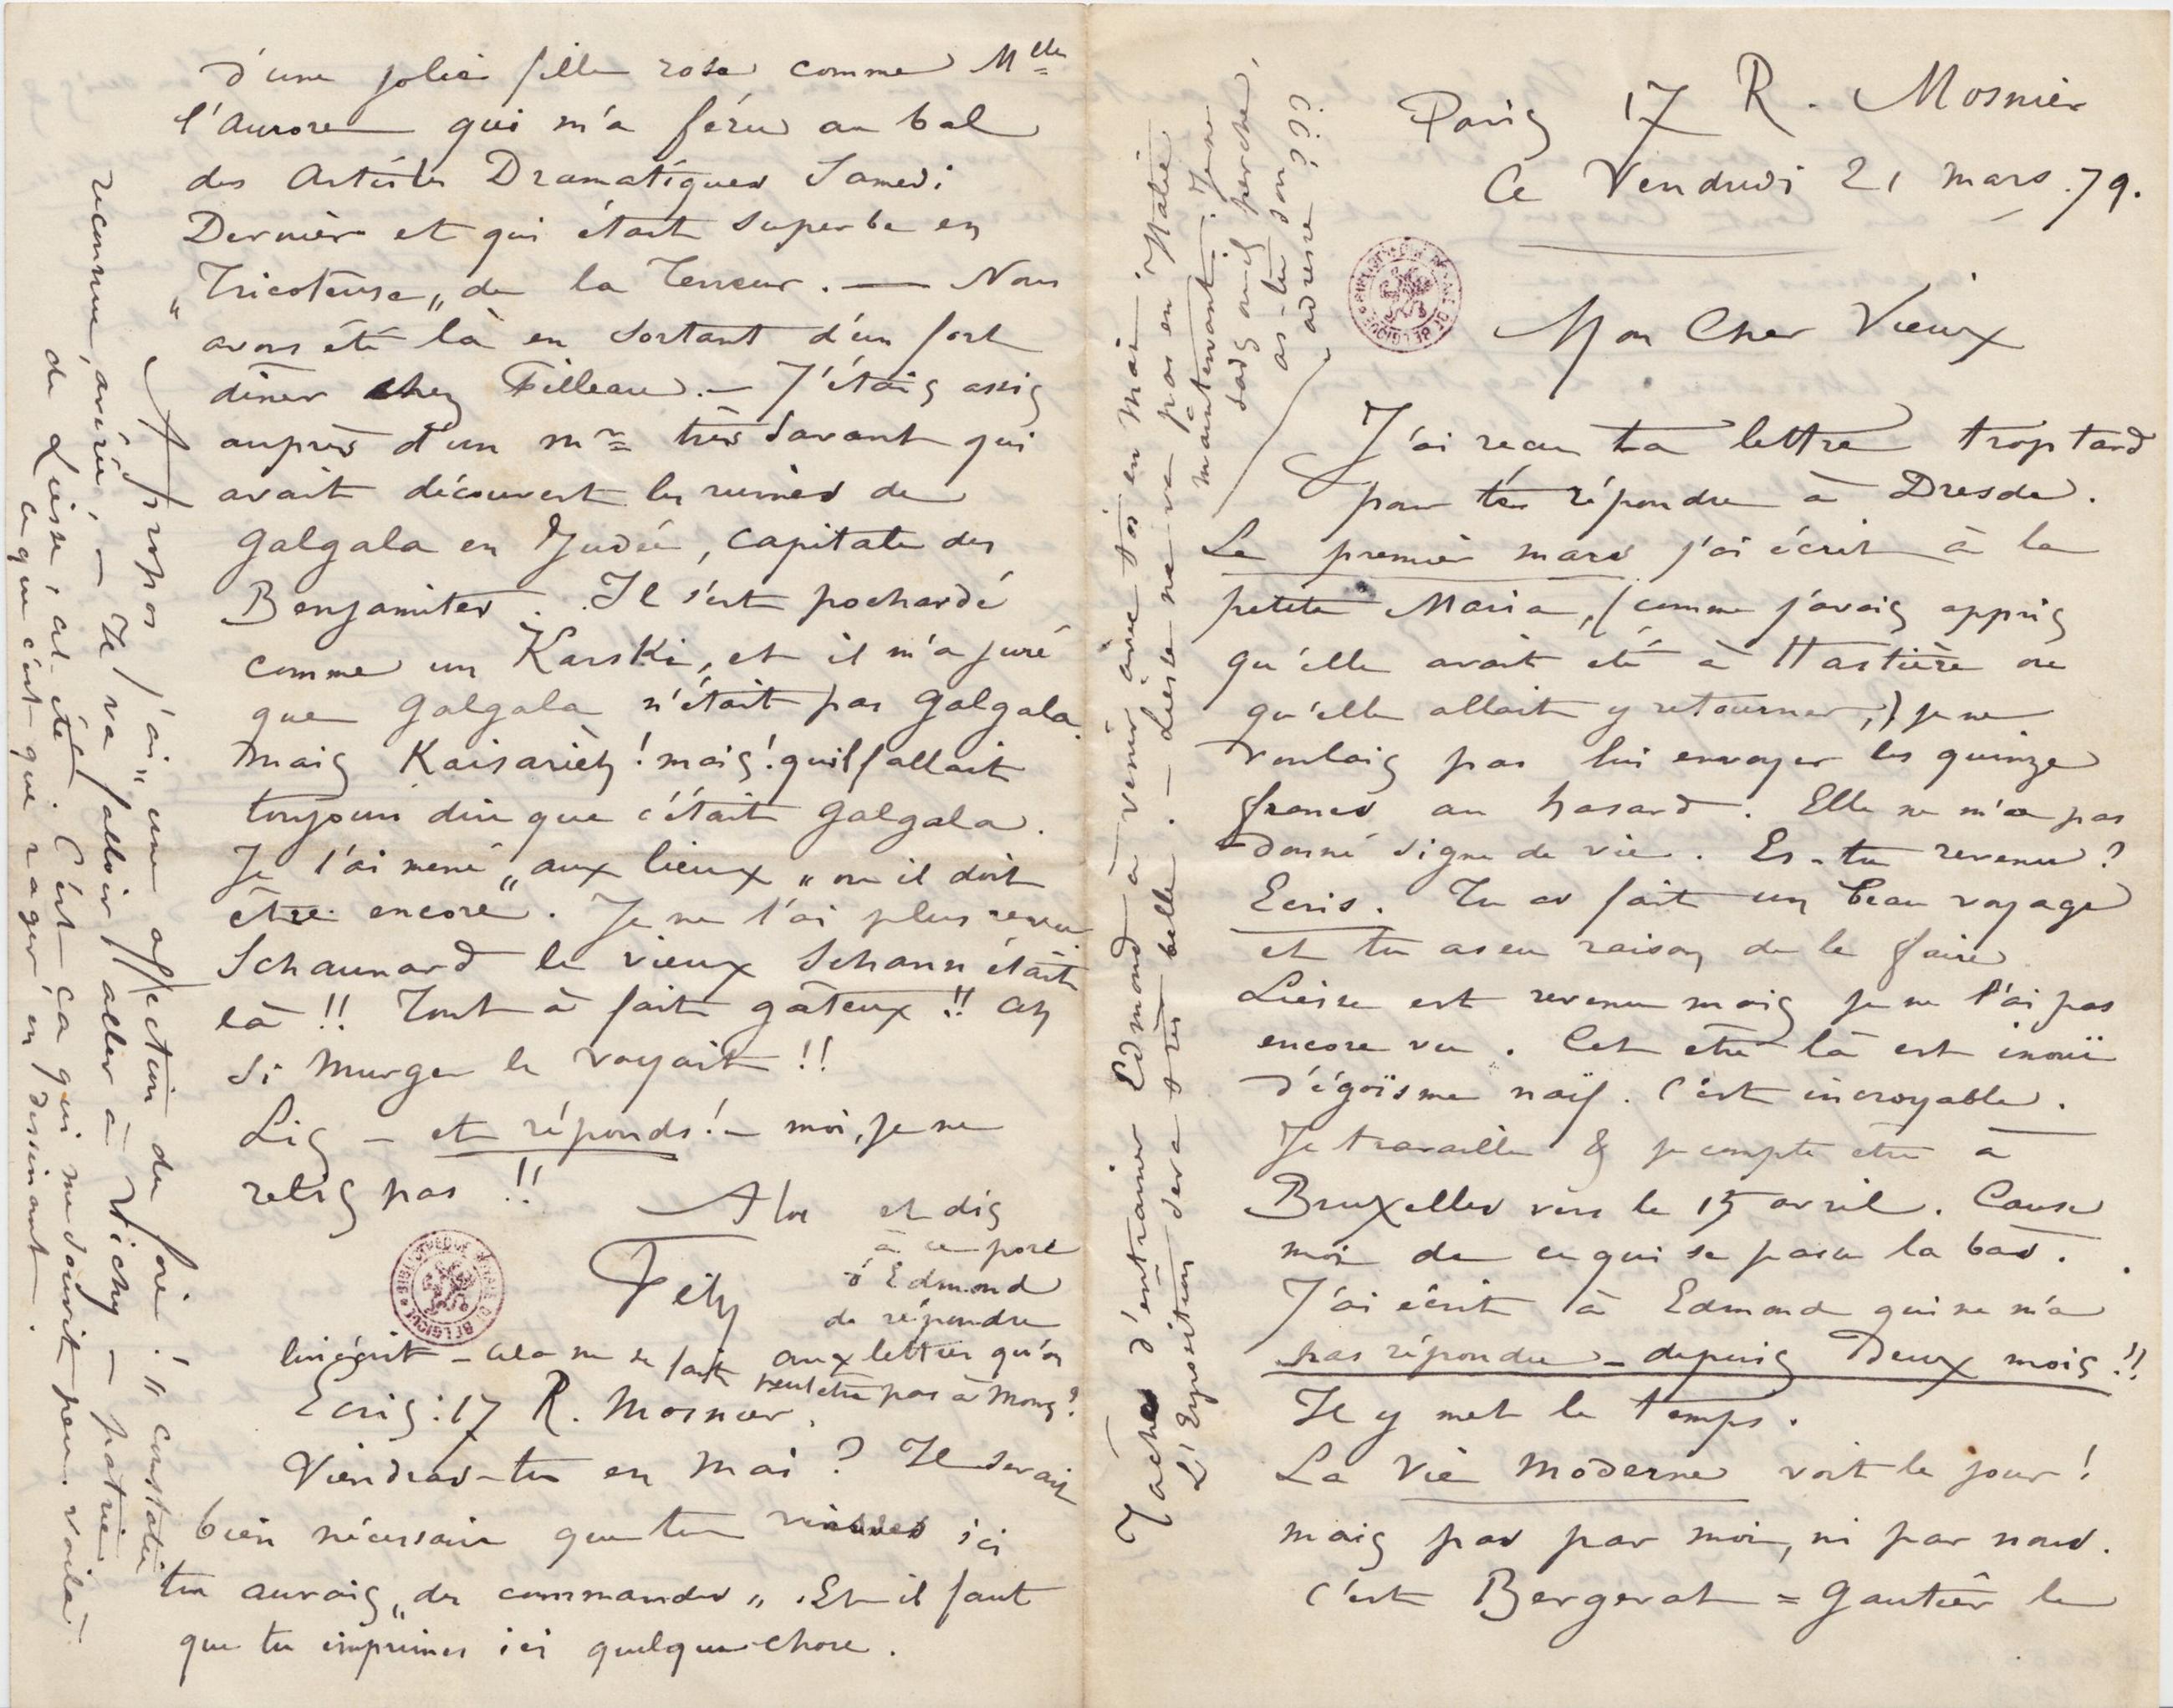 Paris 17 R. Mosnier
Ce Vendredi 21 mars .79.
Mon Cher Vieux
J'ai reçu ta lettre trop tard
pour te répondre à Dresde.
Le premier mars j'ai écrit à la
petite Maria, (comme j'avais appris
qu'elle avait été à Hastière ou
qu'elle allait y retourner,) je ne
voulais pas lui envoyer les quinze
francs au hasard. Elle ne m'a pas
donné signe de vie. Es-tu revenu?
Ecris. Tu as fait un beau voyage
et tu as eu raison de le faire
Liesse est revenu mais je ne l'ai pas
encore vu. Cet être là est inouï
d'égoïsme naïf. C'est incroyable.
Je travaille & je compte être à
Bruxelles vers le 15 avril. Cause
moi de ce qui se passe la bas.
J'ai écrit à Edmond qui ne m'a
pas répondu – depuis Deux mois!!
Il y met le temps.
La Vie Moderne voit le jour!
mais pas par moi, ni par nous.
c'est Bergerat = Gautier le
Tâches d'entrainer Edmond à venir avec toi en Mai.
L'Exposition sera très belle. – Liesse ne va pas en Italie
maintenant.
as-tu son
adresse ???
d'une jolie fille rose comme Mlle
l'Aurore qui m'a féru au bal
des Artistes Dramatiques Samedi
Dernier et qui était superbe en
"Tricoteuse" de la Terreur. — Nous
avons été là en sortant d'un fort
dîner chez Filleau. – J'étais assis
auprès d'un mr très savant qui
avait découvert les ruines de
Galgala en Judée, capitale des
Benjamites. Il s'est pochardé
comme un Karski, et il m'a juré
que Galgala n'était pas Galgala
mais Kaisariëh! mais! qu'il fallait
toujours dire que c'était Galgala.
Je l'ai mené "aux lieux" ou il doit
être encore. Je ne l'ai plus revu
Schaunard le vieux Schann était
là!! Tout à fait gâteux!! Ah
si Murger le voyait!!
Lis – et réponds! – moi, je ne
relis pas!!
A toi
Fély
et dis
à ce porc
d'Edmond
de répondre
aux lettres qu'on
lui écrit – cela ne se fait peut être pas à Mons?
Ecris: 17 R. Mosnier.
Viendras-tu en Mai? Il serait
bien nécessaire que tu vinsses ici
tu aurais "des commandes". Et il faut
que tu imprimes ici quelque chose.
A propos j'ai "une affection du foie!" constatée
reconnue, avérée, – Il va falloir aller à Vichy – patrie
de Liesse, cet été. C'est ça qui me sourit peu. voilà
ce que c'est que rager en dessinant.